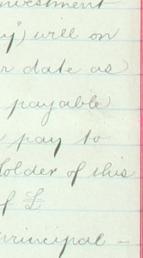 nvestment
y") will on
r date as
payable
pay to
holder of this
f £
principal -